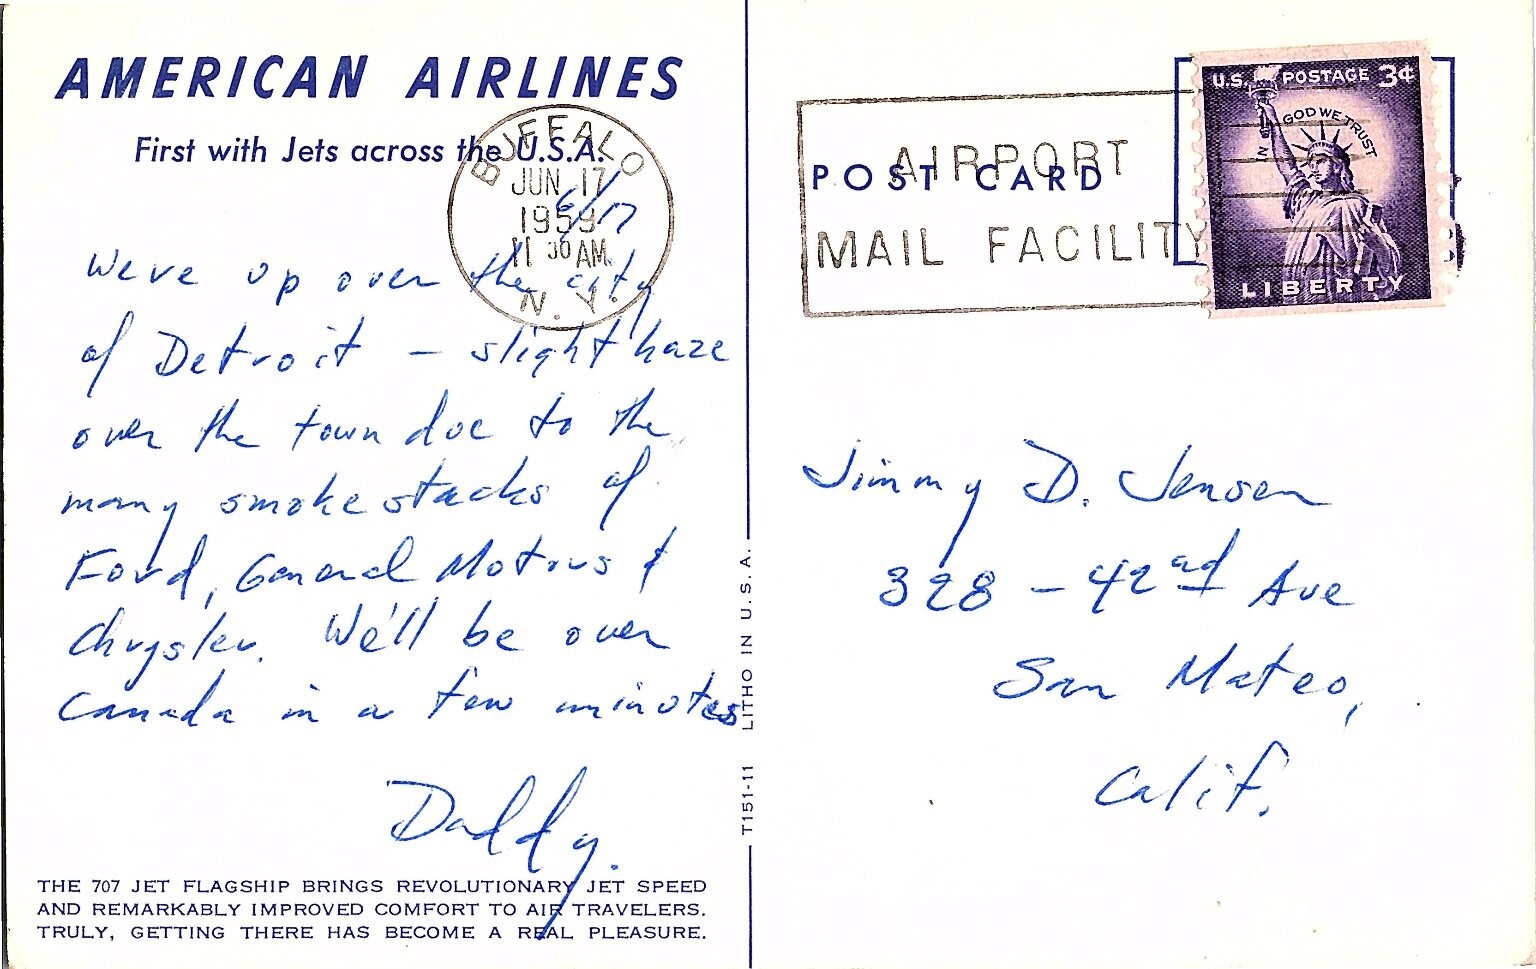 AMERICAN AIRLINES
First with Jets across the U.S.A.
BUFFALO
JUN 17
1959
11 30 AM
N. Y.
6/17
Weve up over the city
of Detroit – slight haze
over the town due to the
many smoke stacks of
Ford, General Motors &
Chrysler. We'll be over
Canada in a few minutes
Daddy.
THE 707 JET FLAGSHIP BRINGS REVOLUTIONARY JET SPEED
AND REMARKABLY IMPROVED COMFORT TO AIR TRAVELERS.
TRULY, GETTING THERE HAS BECOME A REAL PLEASURE.
T151-11 LITHO IN U.S.A.
POST CARD
AIRPORT
MAIL FACILITY
U.S. POSTAGE 3¢
IN GOD WE TRUST
LIBERTY
Jimmy D. Jensen
328 – 42nd Ave
San Mateo,
Calif.